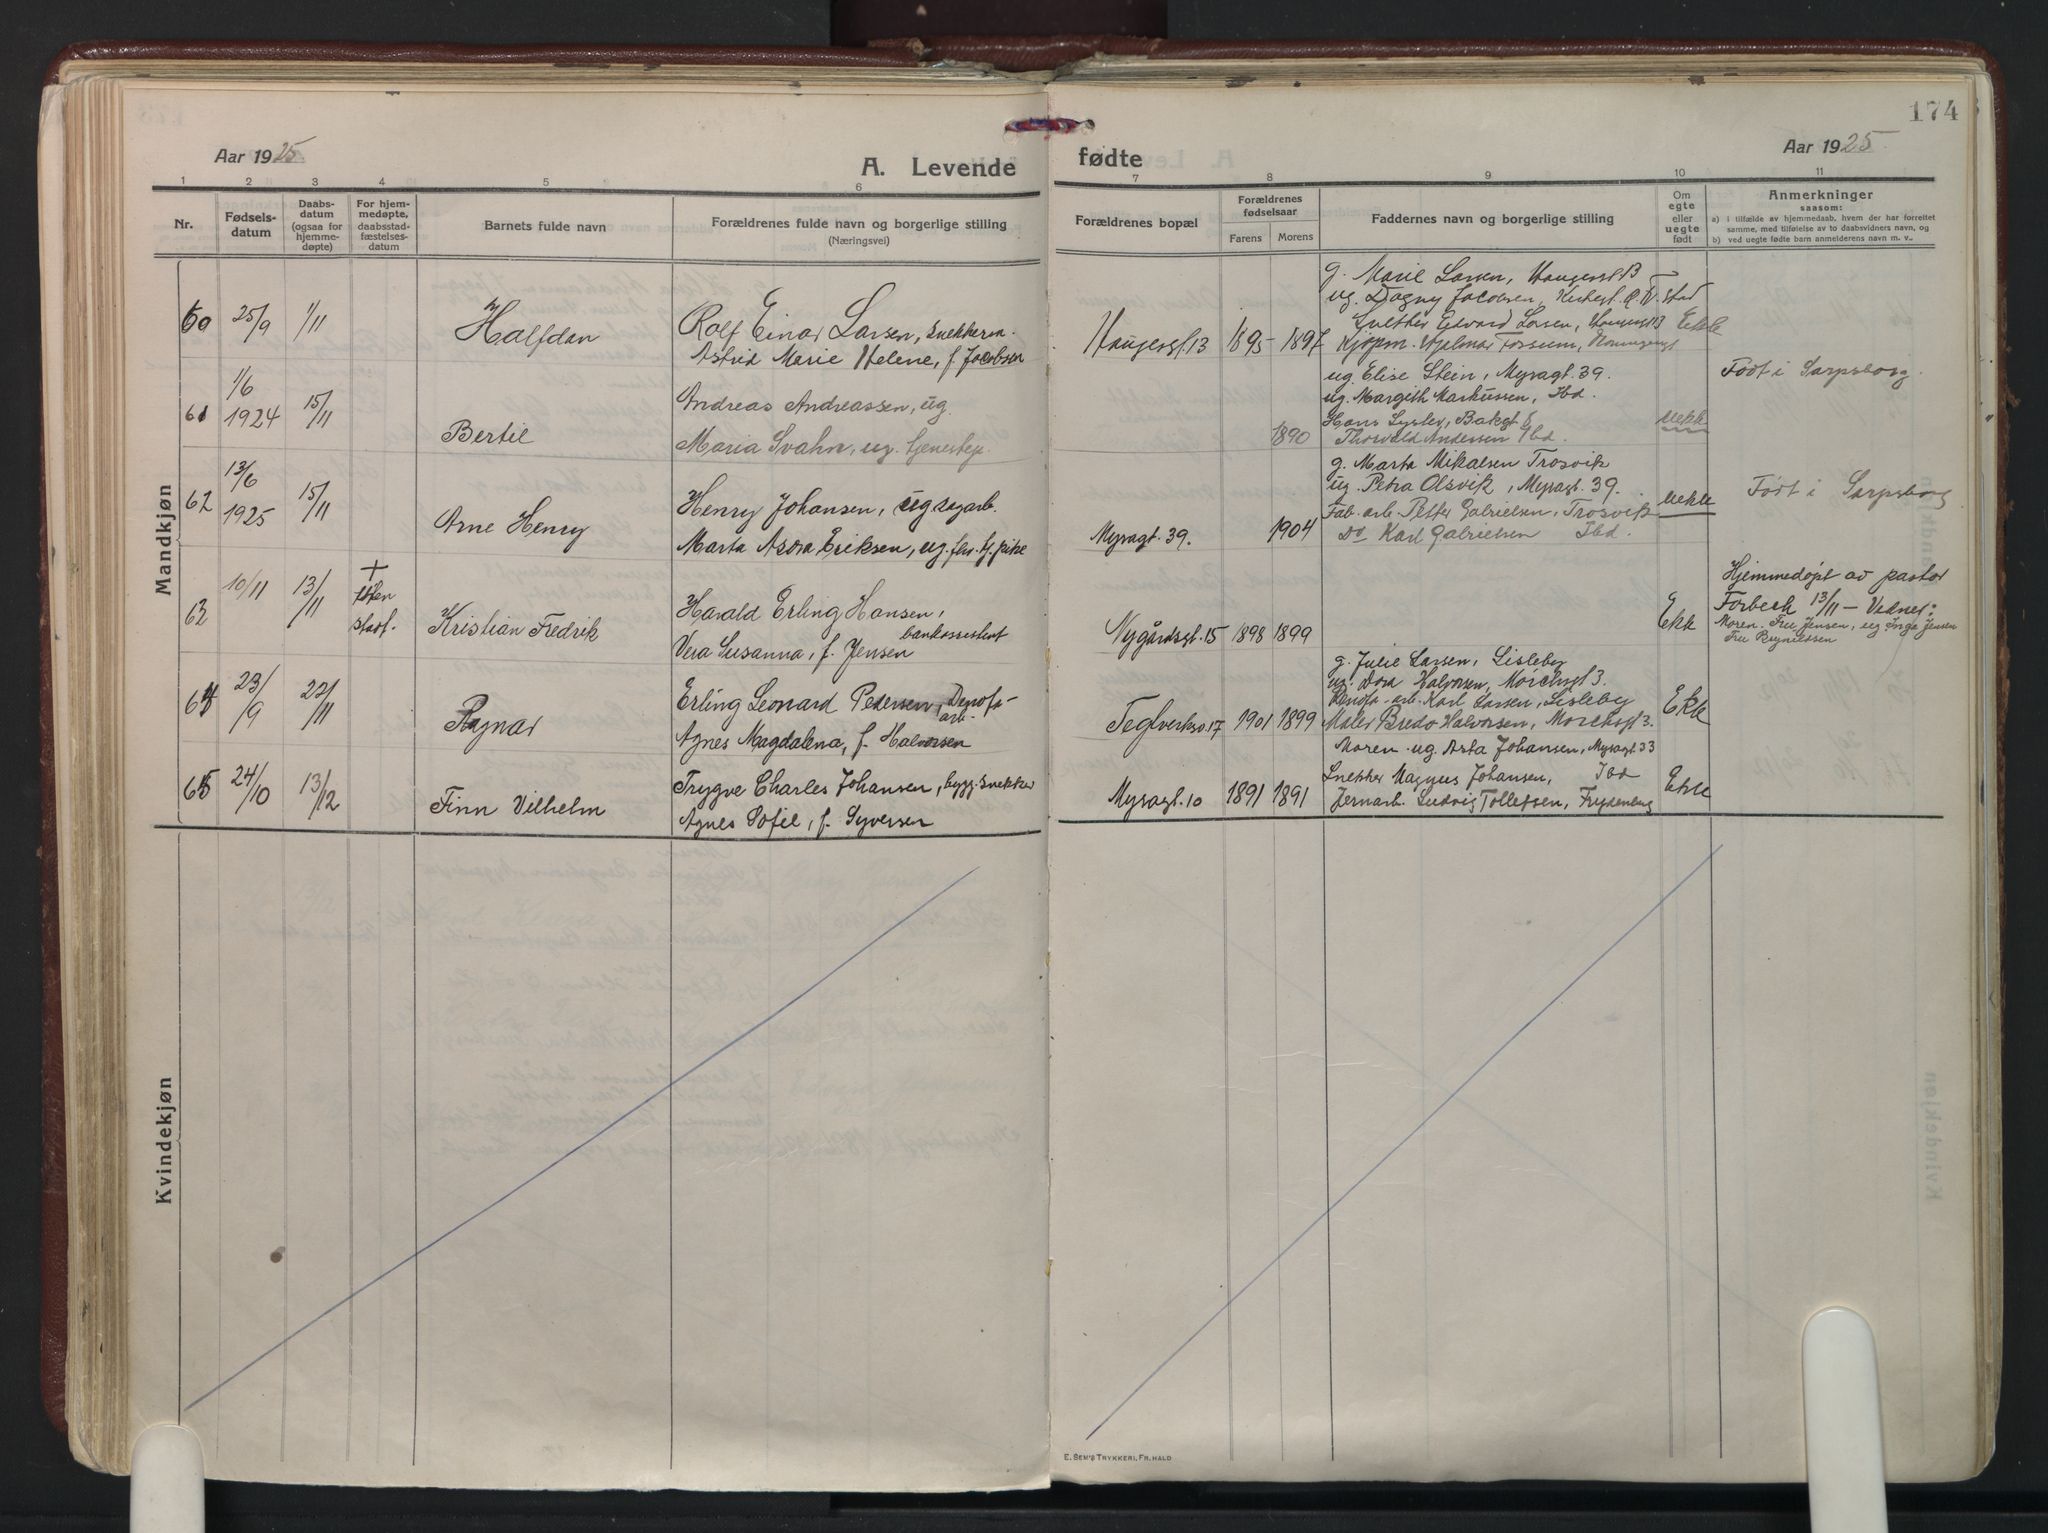 174
Aar 1925
A. Levende
fødte
Aar 1925
1 2 3 4 5 6 7 8 9 10 11
Nr.
Fødsels-
datum
Daabs-
datum
(ogsaa for
hjemme-
døpte)
For hjem-
medøpte,
daabsstad-
fæstelses-
datum
Barnets fulde navn
Forældrenes fulde navn og borgerlige stilling
(Næringsvei)
Forældrenes bopæl
Forældrenes
fødselsaar
Farens Morens
Faddernes navn og borgerlige stilling
Om
egte
eller
uegte
født
Anmerkninger
saasom:
a) i tilfælde av hjemmedaab, hvem der har forrettet
samme, med tilføielse av to daabsvidners navn, og
b) ved uegte fødte barn anmelderens navn m. v.,
Mandkjøn
60 25/9 1/11 Halfdan
Rolf Einar Larsen, snekkerm.
Astrid Marie Helene, f. Jacobsen
Haugesgt. 13 1895 1897
g. Marie Larsen, Haugesgt 13
ug. Dagny Jacobsen, Kirkegt. Fr. stad
Snekker Edvard Larsen, Haugesgt 13
Kjøpm. Hjalmar Fossum,
Ekte
61 1/6 1924 15/11 Bertil
Andreas Andreassen, ug.
Maria Svahn, ug. tjenestep.
1890
ug. Elise Stein, Myragt. 39.
ug. Margith Markussen, Ibd.
Hans Lyslev, Bakegt
Thorvald Andersen Ibd.
Uekte
Født i Sarpsborg.
62 13/6 1925 15/11 Arne Henry
Henry Johansen, ug sagarb.
Marta Asora Eriksen, ug.
Myragt. 39. 1904
g. Marta Mikalsen Trosvik
ug. Petra Olsvik, Myragt. 39.
Fab. arb. Petter Gabrielsen, Trosvik
Do Karl Gabrielsen Ibd.
Uekte
Født i Sarpsborg
63 10/11 13/11 + uten
stadf.
Kristian Fredrik
Harald Erling Hansen,
bankassistent
Vera Susanna, f. Jensen
Nygårdsgt. 15 1898 1899
Ekte
Hjemmedøpt av pastor
Forbech 13/11 – Vidner:
Moren. Fru Jensen, ug Inga Jensen
Fru
64 23/9 22/11 Ragnar
Erling Leonard Pedersen, Denofa-
arb.
Agnes Magdalena, f. Halvorsen
Teglverksv. 17 1901 1899
g. Julie Larsen, Lisleby
ug. Dora Halvorsen, Mørchsgt 3.
Denofa-arb. Karl Larsen, Lisleby
Maler Bredo Halvorsen, Mørchsgt 3.
Ekte
65 24/10 13/12 Finn Vilhelm
Trygve Charles Johansen, bygg. snekker
Agnes Sofie, f. Syversen
Myragt. 10 1891 1891
Moren. ug. Asta Johansen, Myragt 33
Snekker Magnus Johansen, Ibd
Jernarb. Ludvig Tollefsen, Frydenberg
Ekte
Kvindekjøn
E. SEM'S TRYKKERI, FR.HALD